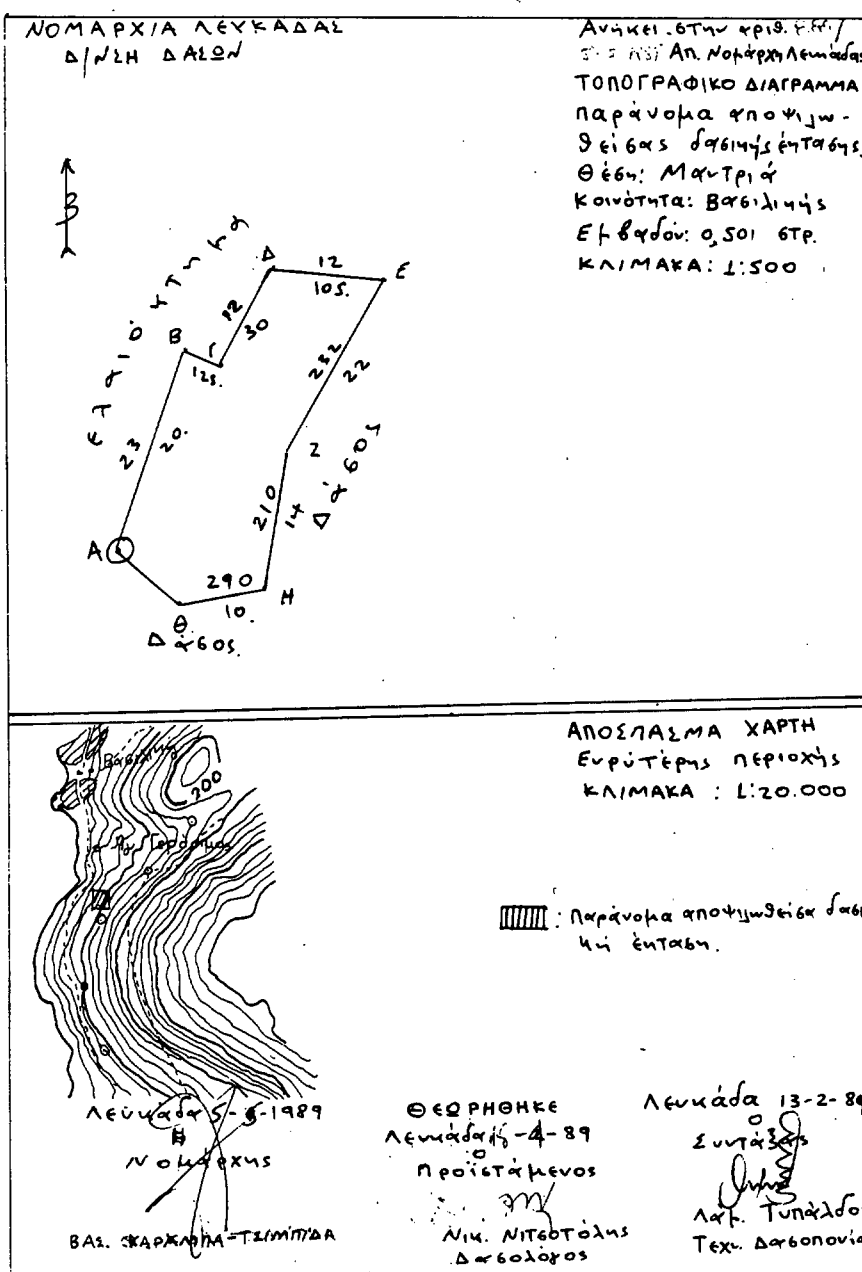 ΝΟΜΑΡΧΙΑ ΛΕΥΚΑΔΑΣ
Δ/ΝΣΗ ΔΑΣΩΝ
Ανήκει στην αριθ.
Απ. Νομάρχη Λευκάδας
ΤΟΠΟΓΡΑΦΙΚΟ ΔΙΑΓΡΑΜΜΑ
παράνομα αποψιλω-
θείσας δασικής έκτασης.
Θέση: Μαντριά
Κοινότητα: Βασιλικής
Εμβαδόν: 0,501 στρ.
ΚΛΙΜΑΚΑ: 1:500
β
ελαιόκτημα
Δ
12
Ε
105.
82
30
Β
Γ
125.
232
22
23
20.
Ζ
Δάσος
210
14
Α
290
Η
10.
Θ
Δάσος.
ΑΠΟΣΠΑΣΜΑ ΧΑΡΤΗ
Ευρύτερης περιοχής
ΚΛΙΜΑΚΑ : 1:20.000
Βασιλική
300
Αγ. Γεράσιμος
: Παράνομα αποψιλωθείσα δασι
κή έκταση.
Λευκάδα 5-6-1989
Η
Νομάρχης
ΒΑΣ. -ΤΣΙΜΠΙΔΑ
ΘΕΩΡΗΘΗΚΕ
Λευκάδα -4-89
Ο
Προϊστάμενος
Νικ. Νιτσοτόλης
Δασολόγος
Λευκάδα 13-2-89
Ο
Συντάξας
Λαμ. Τυπάλδο
Τεχν. Δασοπονία